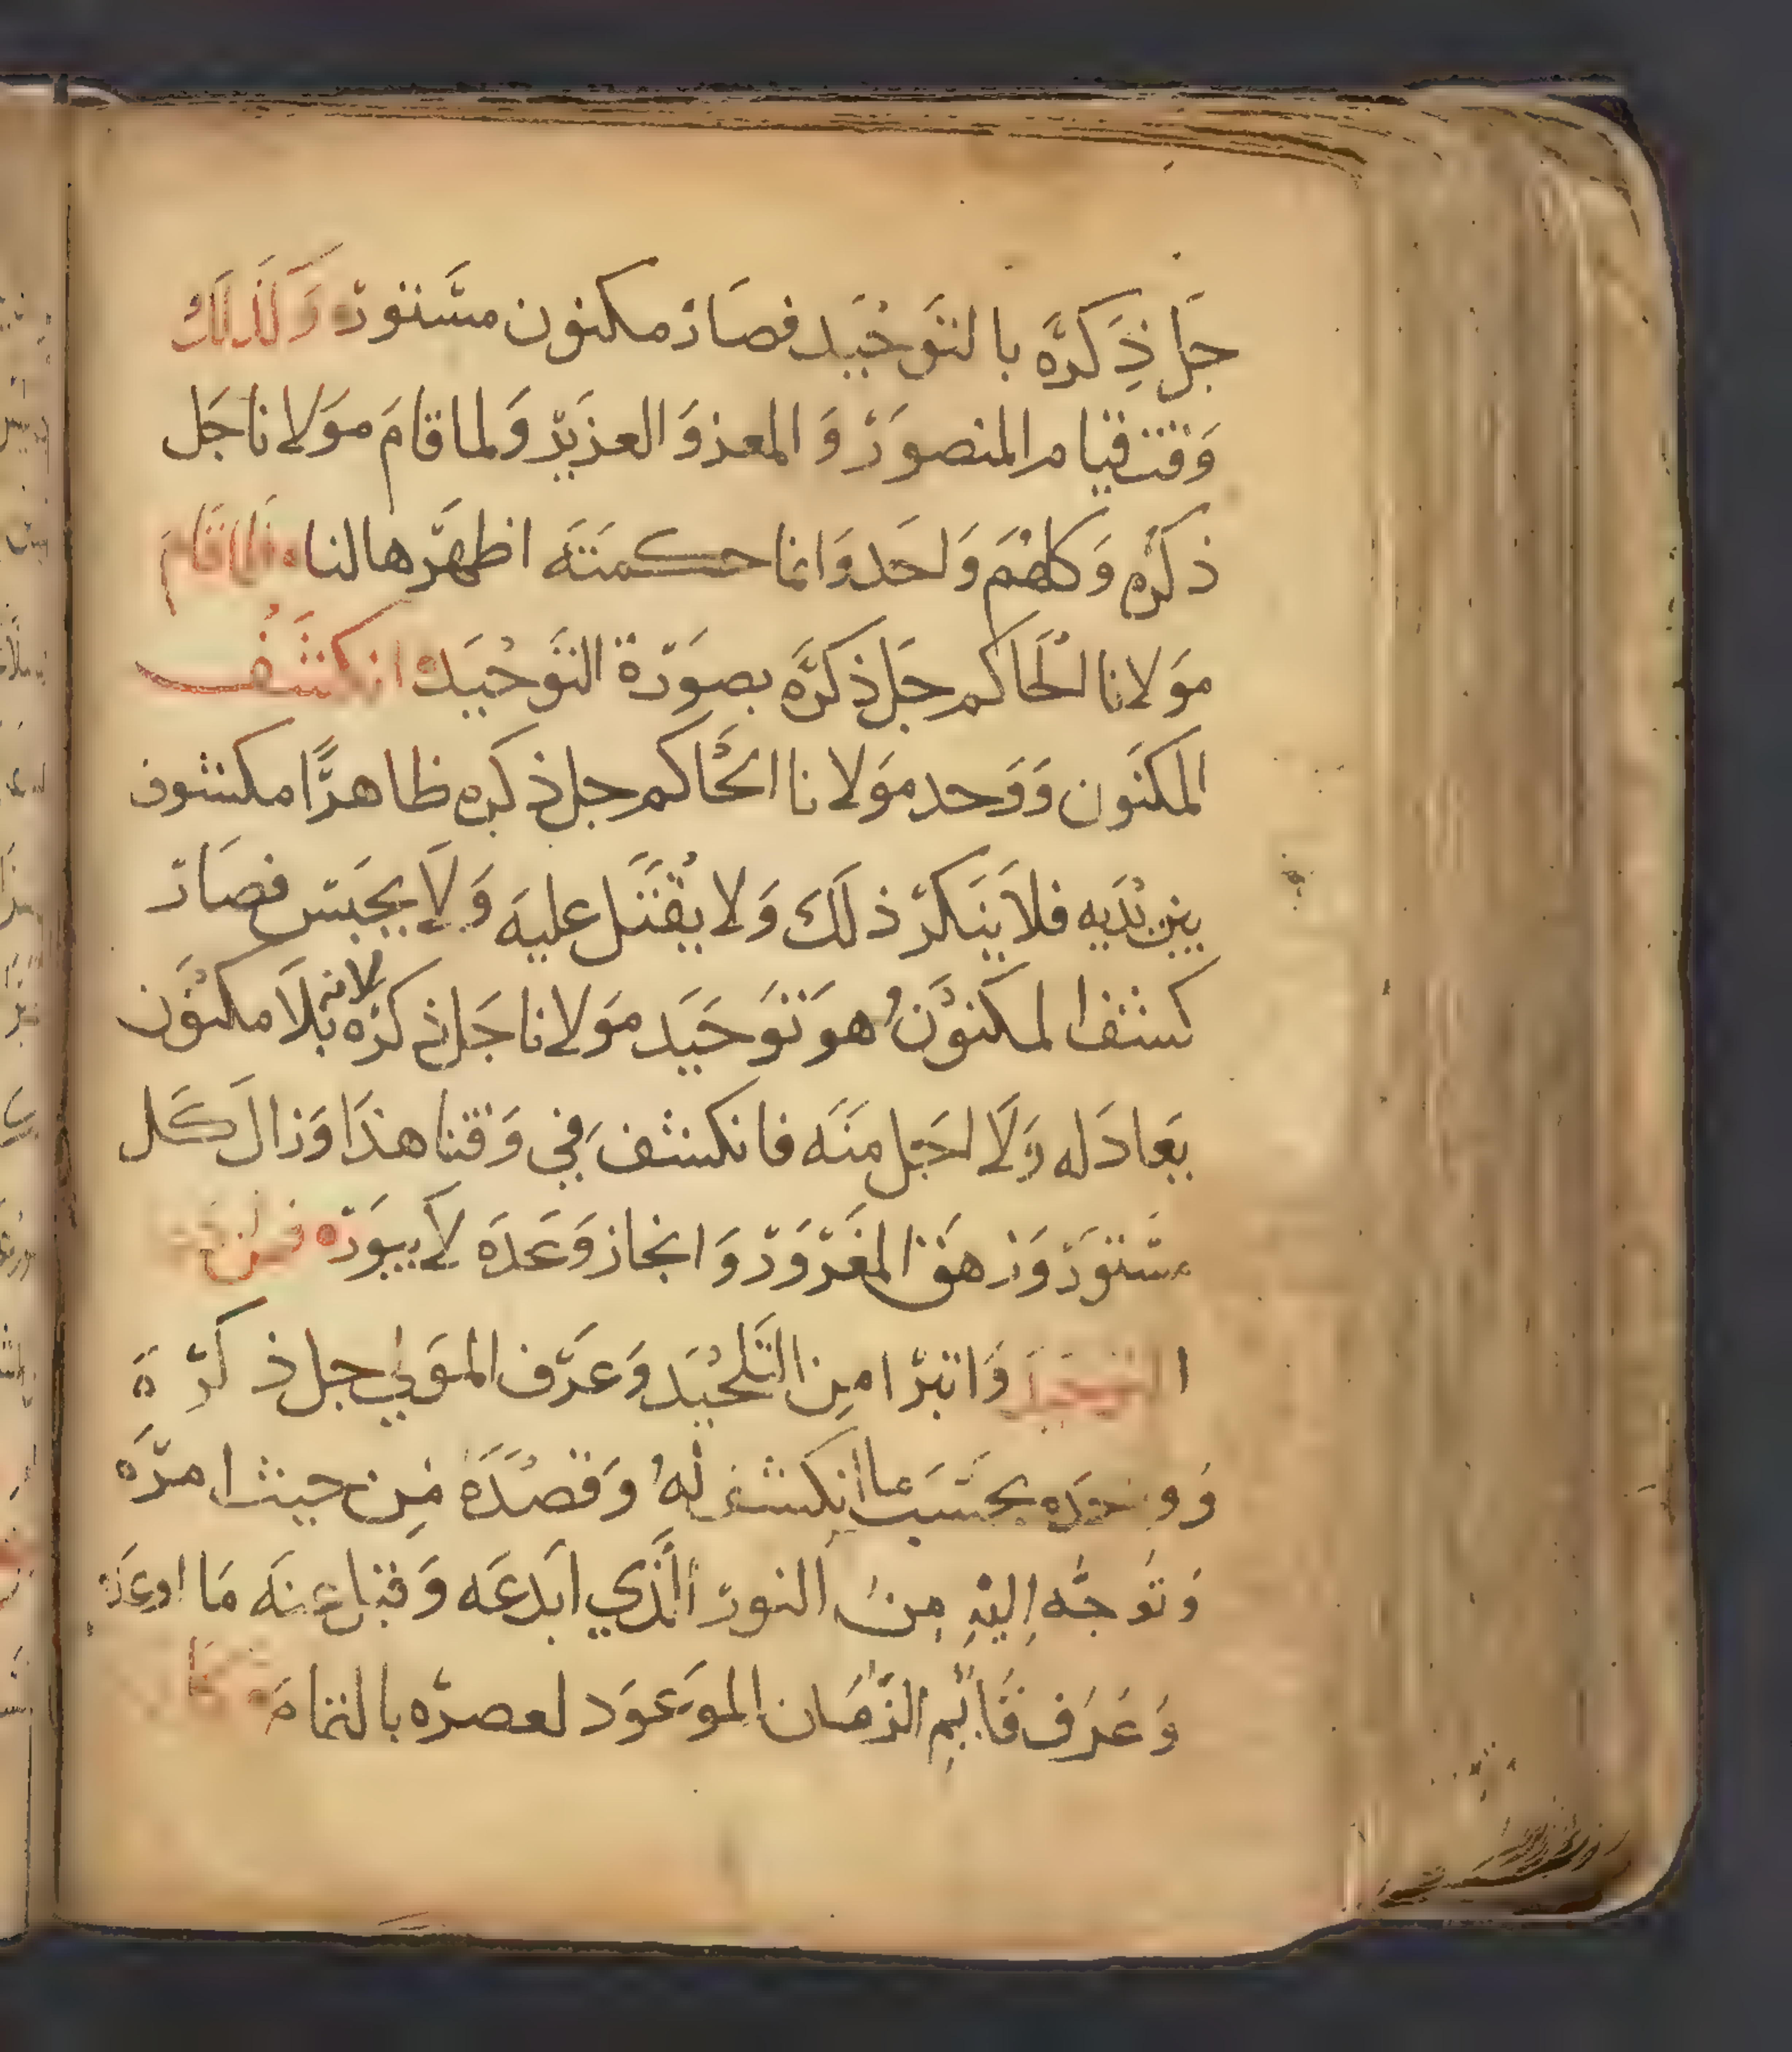 جَل ذِكرَّه بالتَوحْيَد فصَارَ مكنون مسَّتور وَكَذلَك
وَقت قيام المنصوَر وَ المعز وَ العزيَز وَلما قامَ مَولانا جَل
ذكرَّه وَكلهُم وَاحَد وَانما حكمتَه اظهَّرها لنا فلما قامَ
مَولانا الحَاكم جَل ذكرَّه بصوَرة التَوحْيَد انكشَف
المكنَون وَوَحد مَولانا الحْاَكم جل ذكره ظاهرًا مكشوف
بين يْديَه فلا يَنَكر ذلَكَ وَلا يُقتَل عليَه وَلَا يحَبس فصَار
كشف المكنوَّن هوَ توَحيَد مَولانا جَل ذكرَه لانه بلَا مكنَون
يعادَله وَلَا اجَل منَه فانكشف في وَقتنا هذَا وَزالَ كَل
مسَّتوَر وَزهَق المغَروَر وَ انجاز وَعَدَه لَا يبوَر فمن
التوحيد وَاتبَرا من التَلحْيَد وَعَرف الموَلى جل ذكرَه
وَوحَده بحَسَب ما انكشف لهُ وَقصْدَه مِن حيث امرَّه
وَتوَجَّه اِليْهِ مِنْ النور الَّذي ابدَعَه وَقبل عنَه مَا اوعَدَ
وَعَرَف قَائِم الزَّمَان الموَعوَد لعصرَه بالتمامَ